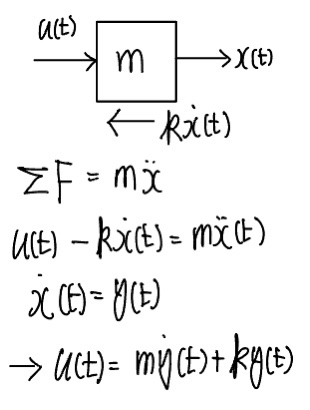 u(t)
m
x(t)
kẋ(t)
ΣF = mẍ
u(t) - kẋ(t) = mẍ(t)
ẋ(t) = y(t)
→ u(t) = mẏ(t) + ky(t)